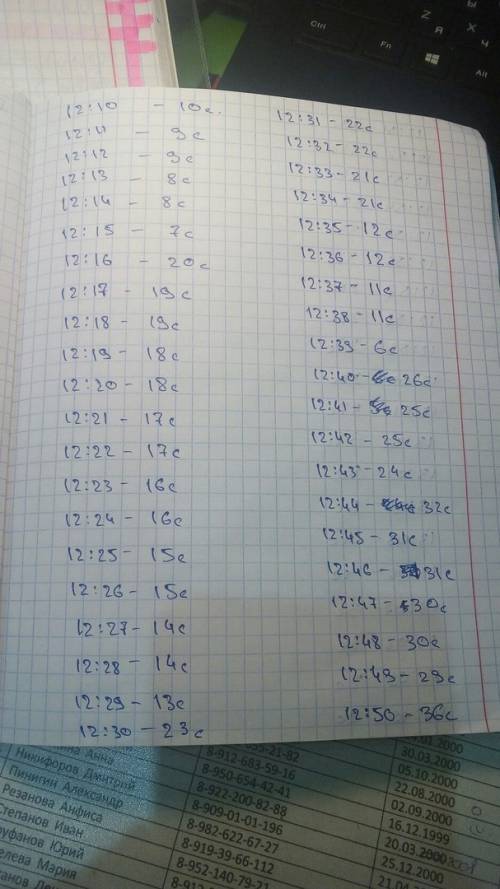 12:10 - 10с.
12:11 - 9с
12:12 - 9с
12:13 - 8с
12:14 - 8с
12:15 - 7с
12:16 - 20с
12:17 - 19с
12:18 - 19с
12:19 - 18с
12:20 - 18с
12:21 - 17с
12:22 - 17с
12:23 - 16с
12:24 - 16с
12:25 - 15с
12:26 - 15с
12:27 - 14с
12:28 - 14с
12:29 - 13с
12:30 - 23с
12:31 - 22с
12:32 - 22с
12:33 - 21с
12:34 - 21с
12:35 - 12с
12:36 - 12с
12:37 - 11с
12:38 - 11с
12:39 - 6с
12:40 - 26с
12:41 - 25с
12:42 - 25с
12:43 - 24с
12:44 - 32с
12:45 - 31с
12:46 - 31с
12:47 - 30с
12:48 - 30с
12:49 - 29с
12:50 - 36с
Ctrl
Fn
Alt
Z
Я
X
Ч
Анна
Никифоров Дмитрий 8-912-683-59-16 30.03.2000
Пинигин Александр 8-950-654-42-41 05.10.2000
Резанова Анфиса 8-922-200-82-88 22.08.2000
Степанов Иван 8-909-01-01-196 02.09.2000
Юрий 8-982-622-67-27 16.12.1999
Мария 8-919-39-66-112 20.03.2000
8-952-140-79-21 25.12.2000